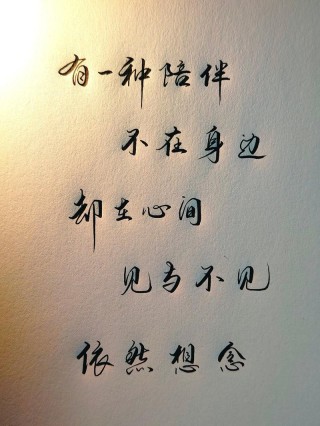 有一种陪伴
不在身边
却在心间
见与不见
依然想念